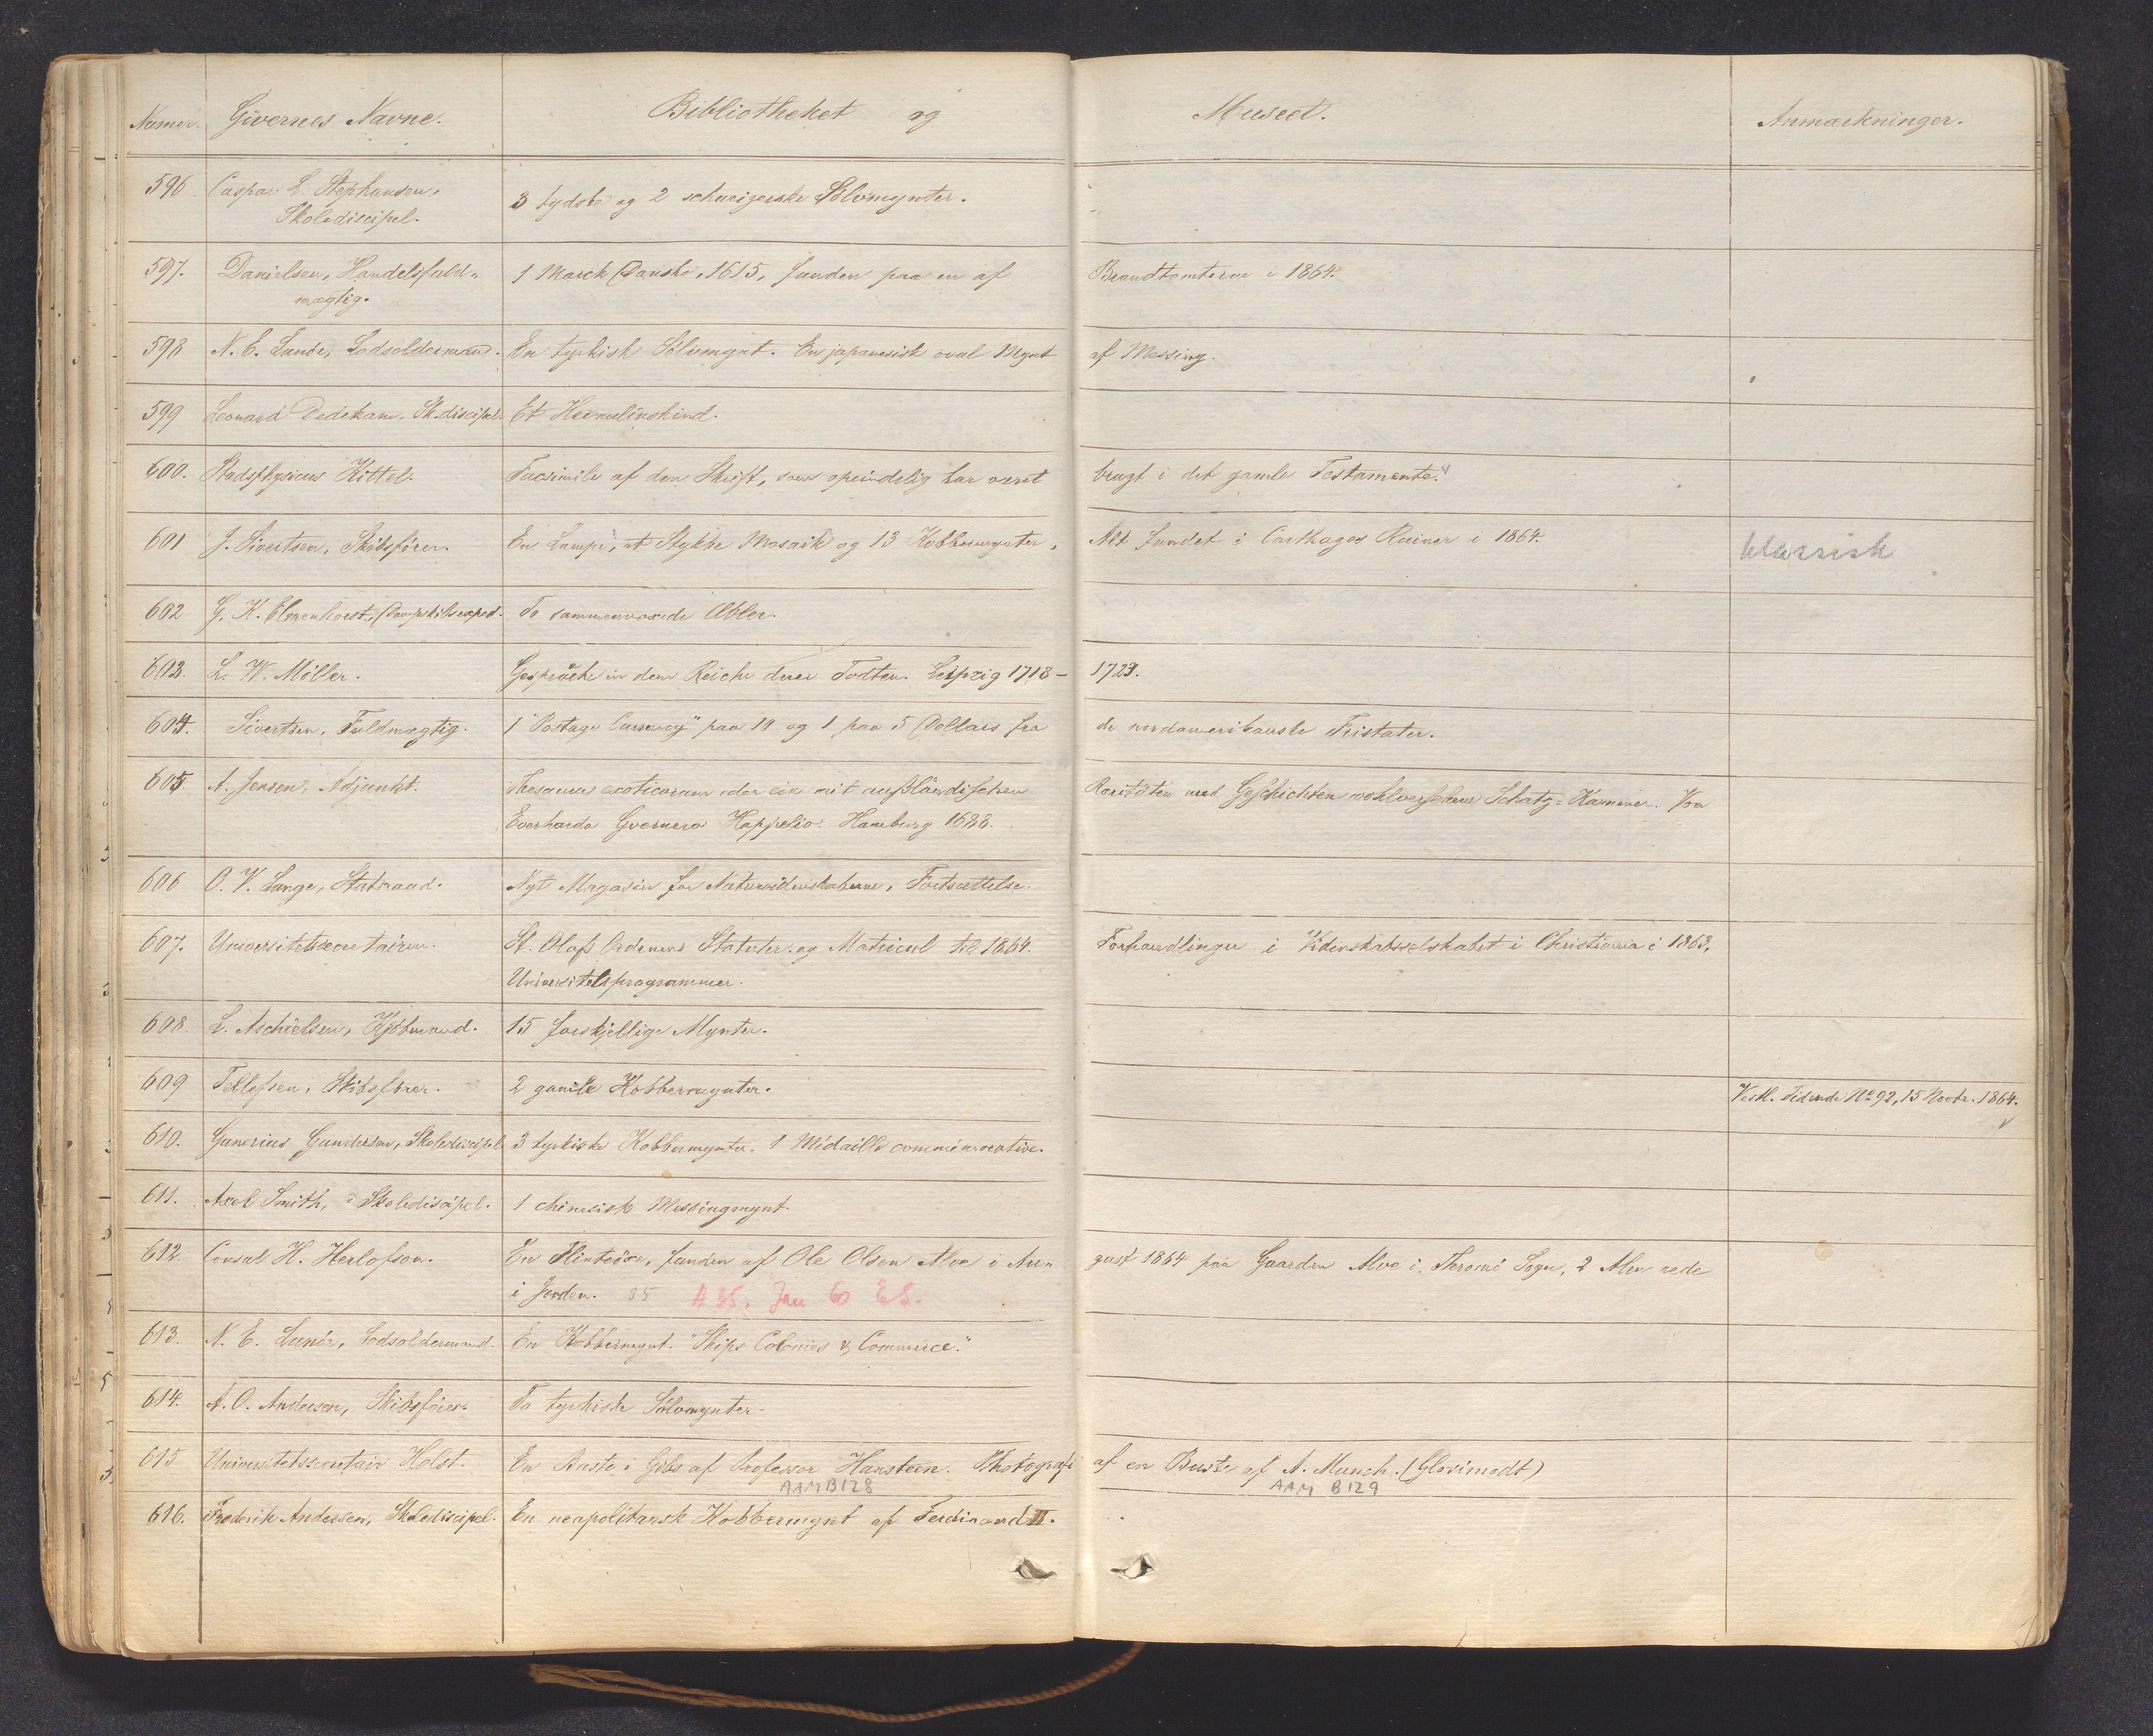 Numer. Givernes Navne. Bibliotheket og Museet. Anmærkninger.
596 Caspar L. Stephansen, 3 tydske og 2 schweizerske Sølvmynter.
Skolediscipel.
597. Danielsen, Handelsfuld= 1 Marck Danske, 1615, funden paa en af Brandtomterne i 1864.
mægtig.
598 N. E. Lunde, Lodsoldermand. En tyrkisk Sølvmynt. En japanesisk oval Mynt af Messing.
599 Leonard Dedekam, Sk.discipel. Et Hermelinskind.
600. Stadsphysicus Kittel. Facsimile af den Skrift, som oprindelig har været brugt i det gamle Testamente.
601 J. Sivertsen, Skibsfører. En Lampe, et Stykke Mosaik og 13 Kobbermynter, Alt fundet i Carthagos Ruiner i 1864. klassisk
602 G. K. Elmenhorst, Dampskibsexped. To sammenvoxede Æbler.
603. L. W. Møller. Gespräche in dem Reiche derer Todten. Leipzig 1718- 1729.
604. Sivertsen, Fuldmægtig. 1 "Postage Currency" paa 10 og 1 paa 5 Dollars fra de nordamerikanske Fristater.
605. A. Jensen, Adjunkt. Thesaurus exoticorum oder ein mit außländischen Raritäten und Geschichten wohlversehene Schatz=Kammer. Von
Everhardo Gvernero Happelio. Hamburg 1688.
606 O. V. Lange, Statsraad. Nyt Magazin for Naturvidenskaberne, Fortsættelse.
607. Universitetssecretairen. St. Olafs Ordenens Statuter og Matricul til 1864. Forhandlinger i Videnskabsselskabet i Christiania i 1863,
Universitetsprogrammer.
608. L. Aschielsen, Kjøbmand. 15 forskjellige Mynter.
609 Tellefsen, Skibsfører. 2 gamle Kobbermynter. Vestl. Tidende No 92, 15 Novbr. 1864.
610. Gunerius Gundersen, Skolediscipel 3 tyrkiske Kobbermynter. 1 Médaille commémorative.
611. Axel Smith, Skolediscipel. 1 chinesisk Messingmynt.
612. Consul H. Herlofson. En Flintøxe, funden af Ole Olsen Alve i Au= gust 1864 paa Gaarden Alve i Tromø Sogn, 2 Alen nede
i Jorden. 35 A 35. Jan 60 E.S.
613. N. E. Lunde, Lodsoldermand. En Kobbermynt. "Ships Colonies & Commerce."
614. A. O. Andersen, Skibsfører. To tyrkiske Sølvmynter.
615 Universitetssecretair Holst. En Buste i Gibs af Professor Hansteen. Photografi af en Buste af A. Munch. (Glosimodt)
AAM B128 AAM B129
616. Frederik Andersen, Skolediscipel. En neapolitansk Kobbermynt af Ferdinand II.